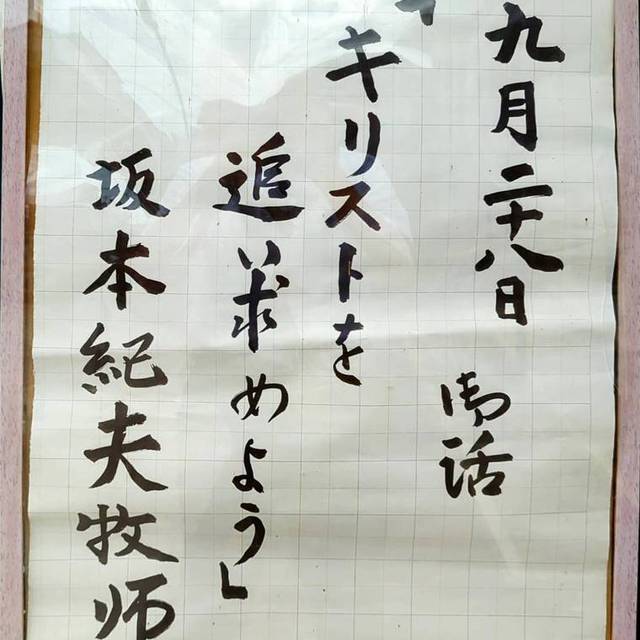 九月二十八日 御話
「キリストを
追い求めよう」
坂本紀夫牧師